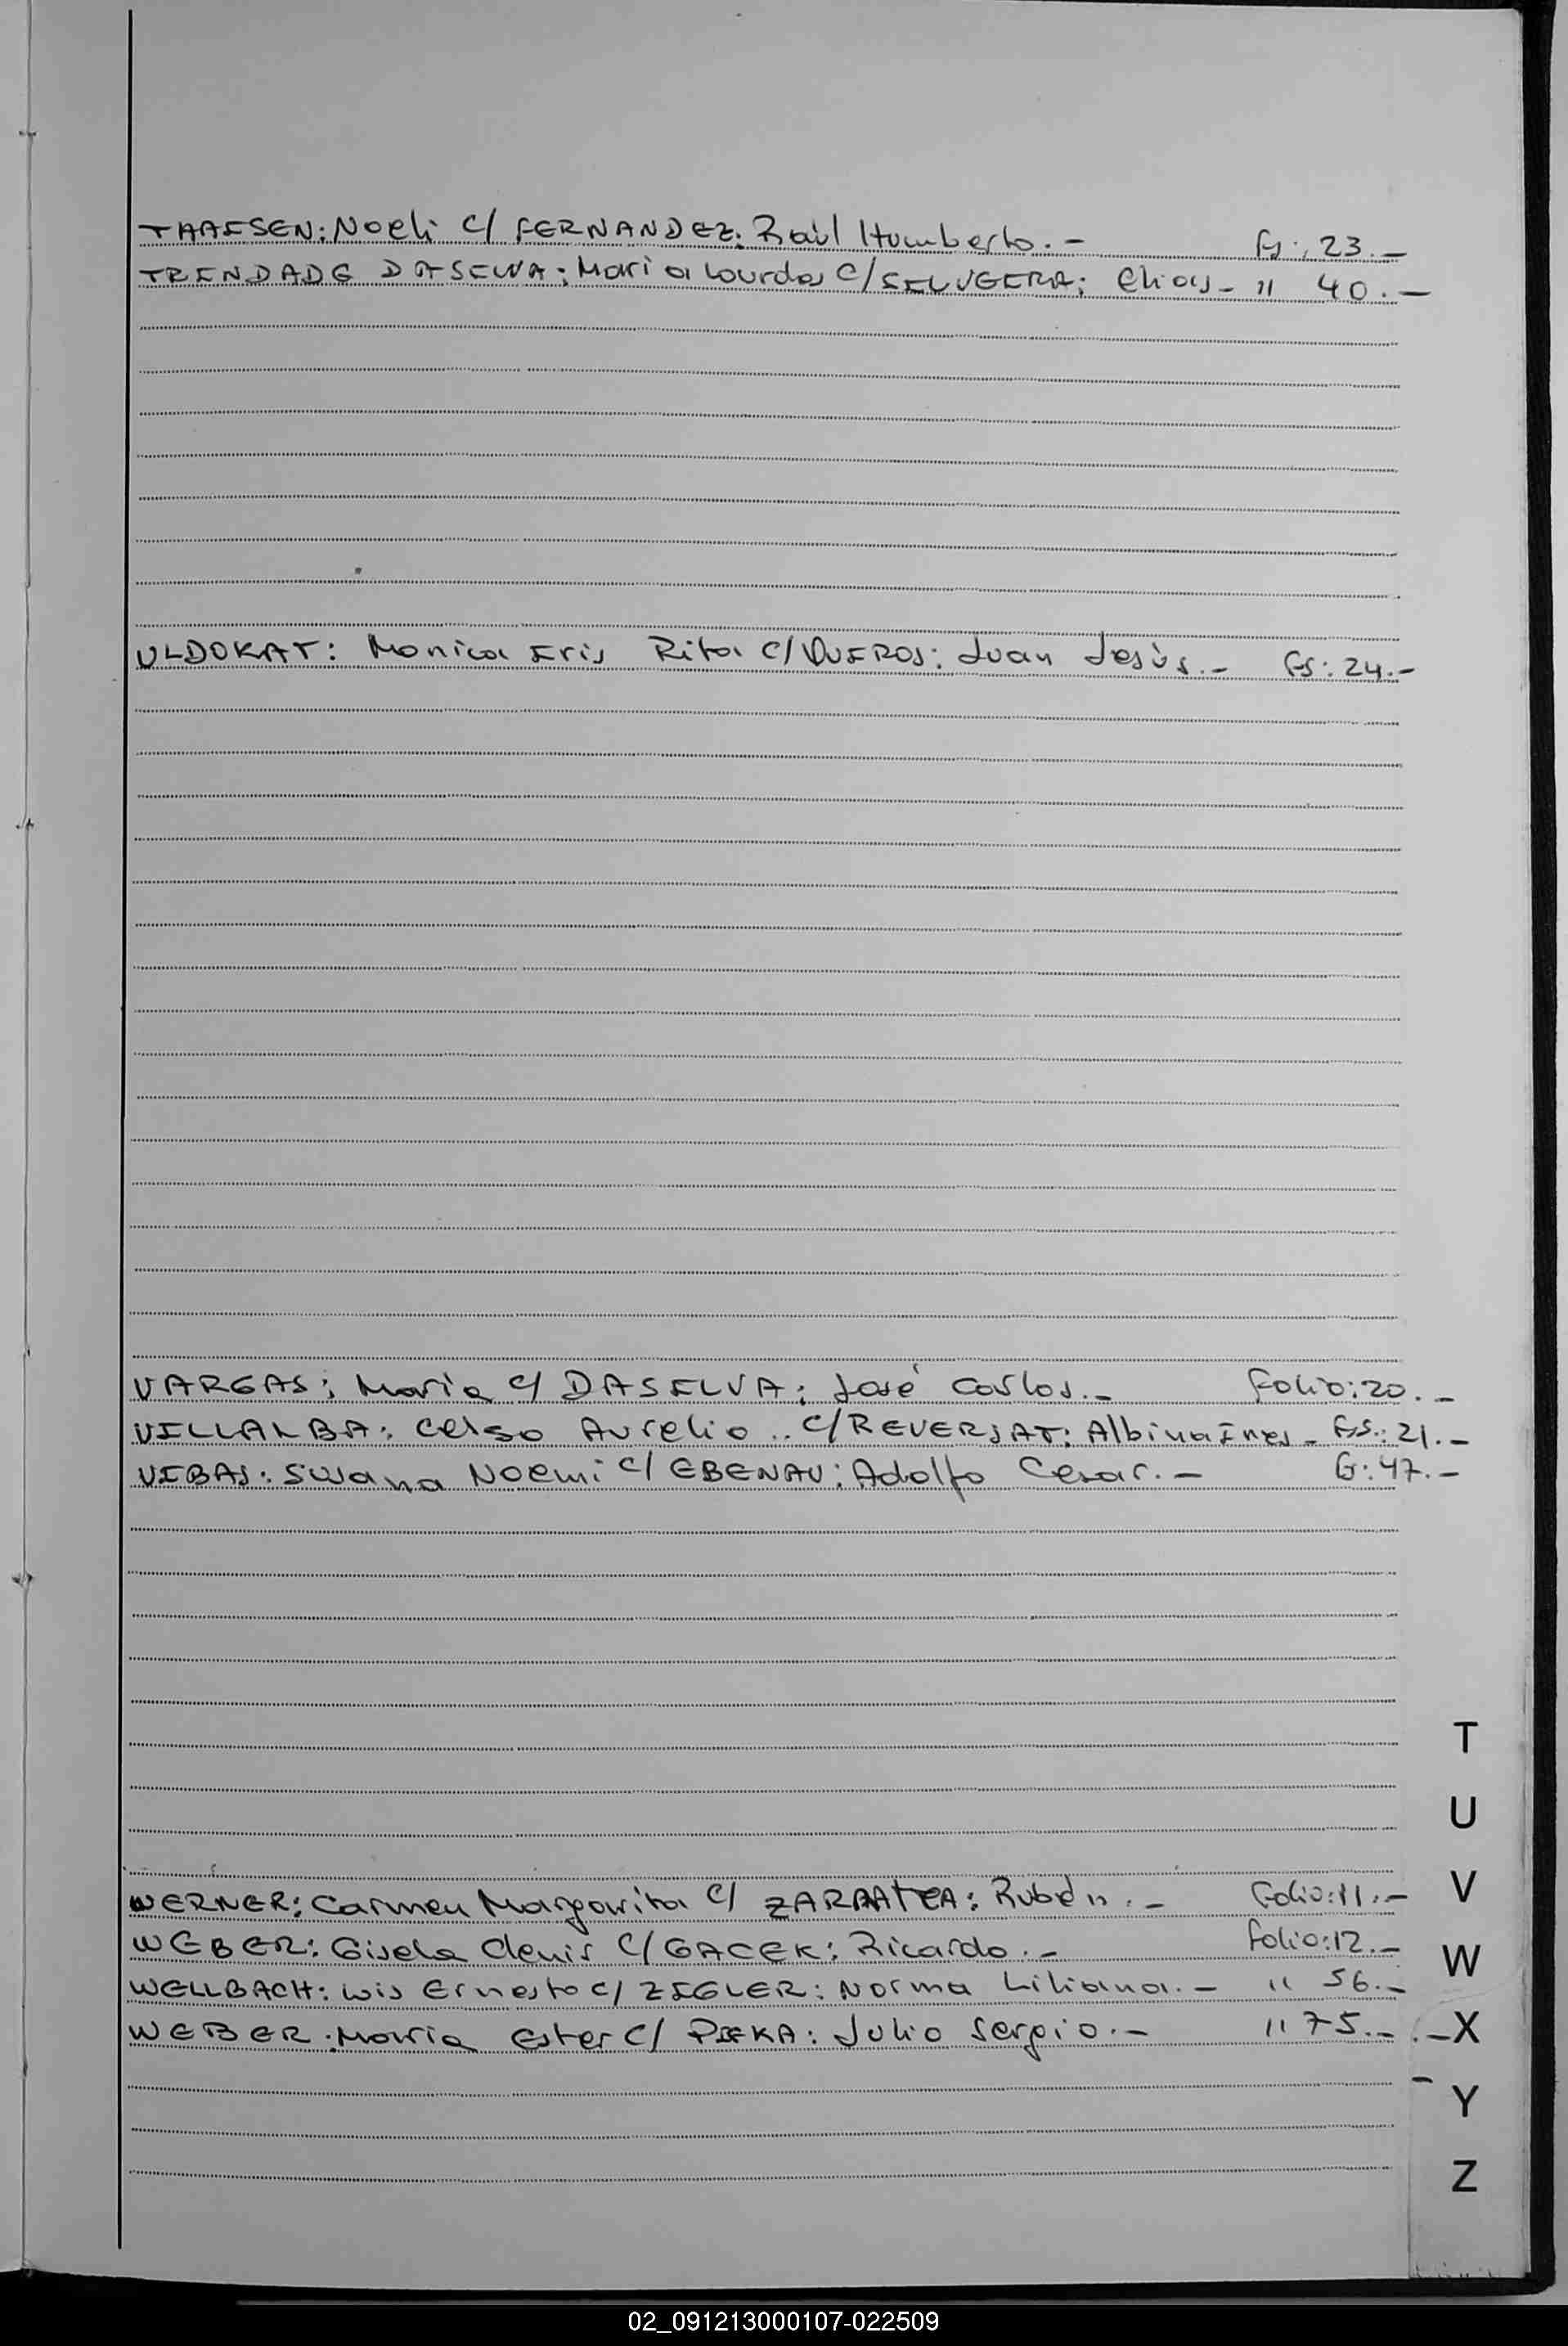 THAISEN: Noeli C/ FERNANDEZ: Raúl Humberto.- Fs: 23.-
TRINDADE DASILVA: Maria Lourdes C/ SILVGERA: Elias - " 40.-
ULDOKAT: Monica Iris Rita C/ QUIROS: Juan Jesús.- Fs: 24.-
VARGAS: Maria C/ DASILVA: José Carlos.- Folio: 20.-
VILLALBA: Celso Aurelio.. C/ REVERSAT: Albina Ines - Fs.: 21.-
VIBAS: Susana Noemi C/ EBENAU: Adolfo Cesar.- 47.-
WERNER: Carmen Margarita C/ Rubén.- Folio: 11.-
WEBER: Gisela Clenis C/ GACEK: Ricardo.- Folio: 12.-
WELLBACH: Luis Ernesto C/ ZIGLER: Norma Liliana.- " 56.-
WEBER: Maria Ester C/ Julio Sergio.- " 75.-
T
U
V
W
X
Y
Z
02_091213000107-022509